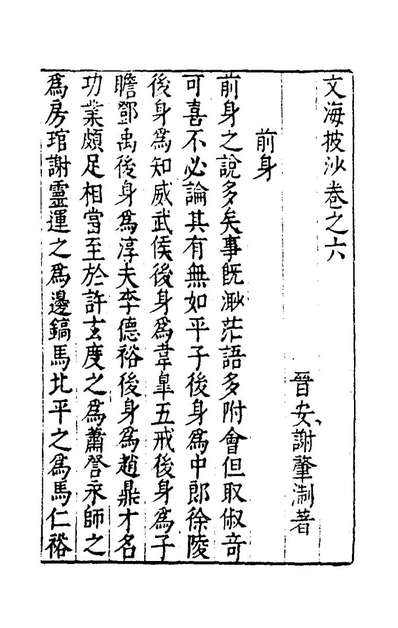 文海披沙卷之六
晉安謝肇淛著
前身
前身之說多矣事既渺茫語多附會但取俶竒
可喜不必論其有無如平子後身為中郎徐陵
後身為知威武侯後身為韋臯五戒後身為子
瞻鄧禹後身為淳夫李德裕後身為趙鼎才名
功業頗足相當至於許玄度之為蕭詧永師之
為房琯謝靈運之為邊鎬馬北平之為馬仁裕